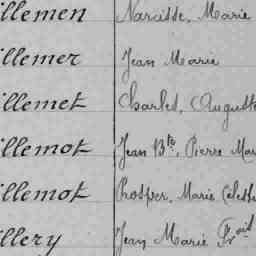 illemen Narcisse, Marie
illemer Jean Marie
illemet Charles, Auguste
illemot Jean Bte, Pierre Mar
illemot Prosper, Marie Célest
illery Jean Marie Frois